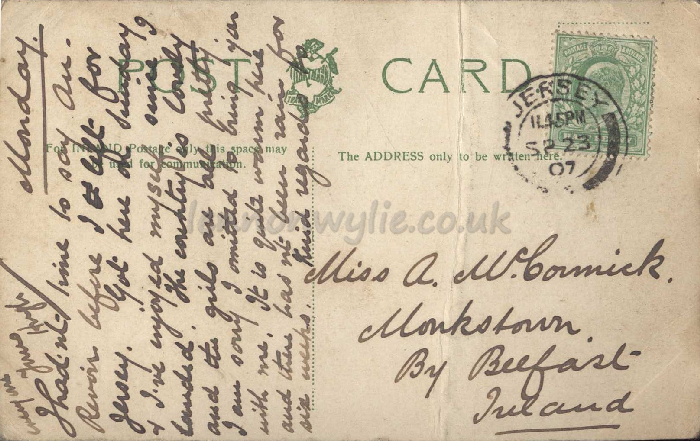 POST CARD
For INLAND Postage only this space may
used for communication.
The ADDRESS only to be written here.
JERSEY
11.45PM
SP 23
07
lennonwylie.co.uk
Monday.
I had n't time to say Au-
Revoir before I left for
Jersey. Got here on Sunday
& I've enjoyed myself since I
landed. The country is lovely
and the girls are all pretty
I am sorry I omitted to bring you
with me. It is quite warm here
and there has n't been rain for
six weeks. Kind regards to
Miss A. McCormick.
Monkstown
By Belfast
Ireland